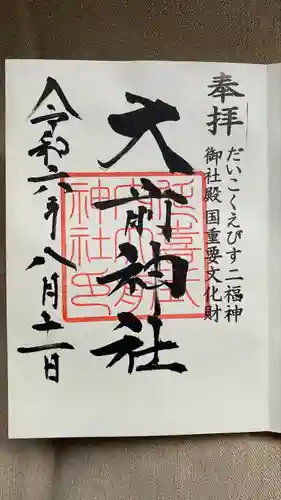 奉拝
だいこくえびす二福神
御社殿国重要文化財
大前神社
延喜式内大前神社印
令和六年八月十一日